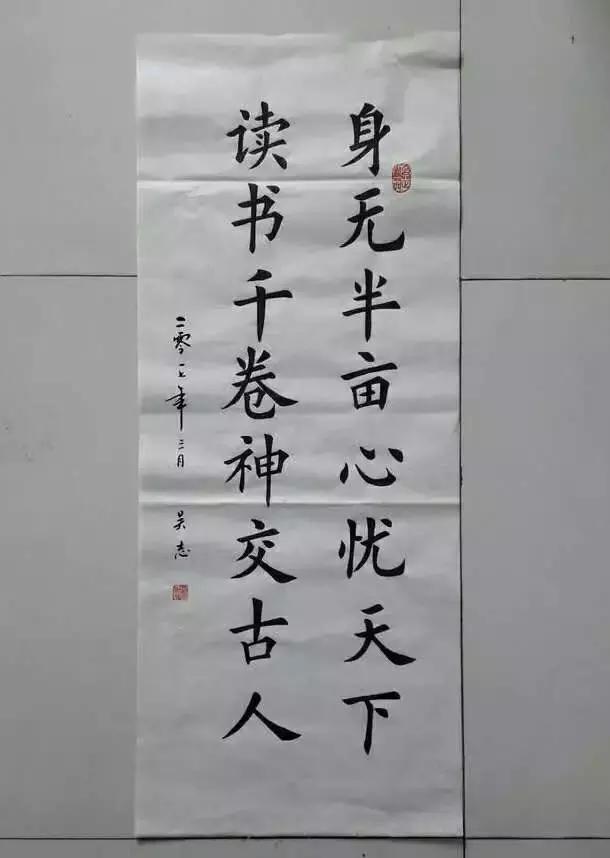 身无半亩心忧天下
读书千卷神交古人
二零一七年三月 吴志